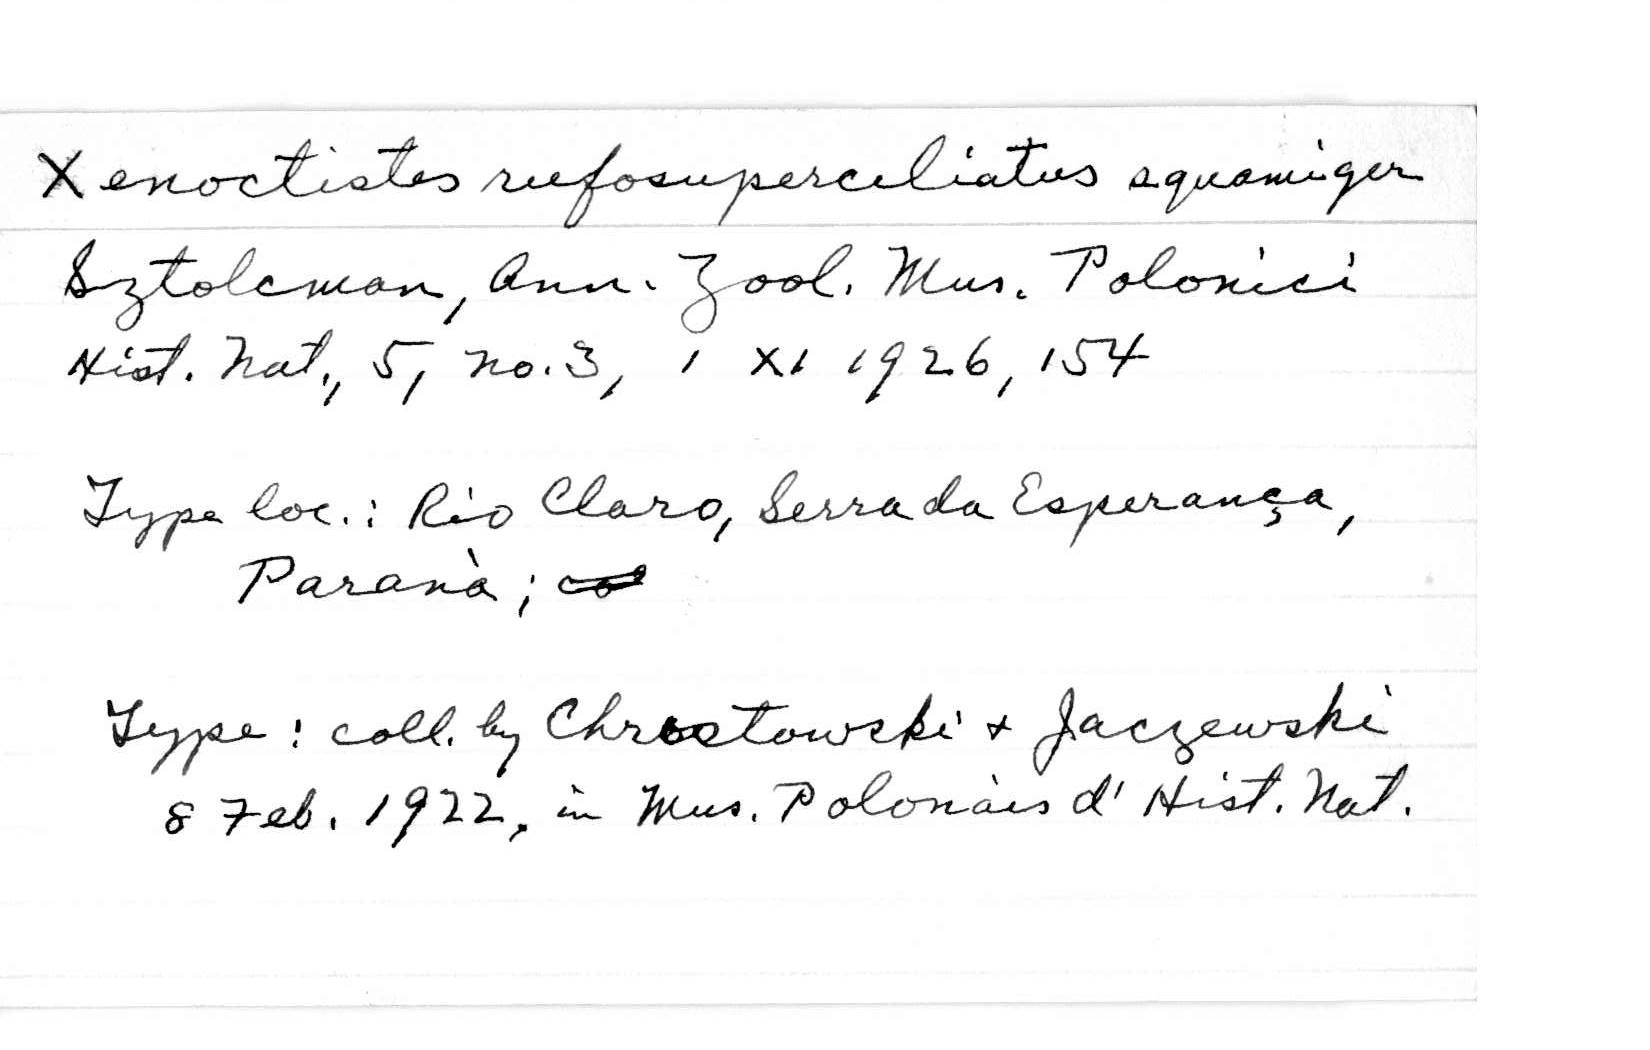 Xenoctistes rufosuperciliatus squamiger
Sztolcman, Ann. Zool. Mus. Polonici
Hist. Nat., 5, no. 3, 1 XI 1926, 154
Type loc.: Rio Claro, Serra da Esperança,
Paranà;
Type: coll. by Chrostowski + Jaczewski
8 Feb. 1922, in Mus. Polonais d' Hist. Nat.